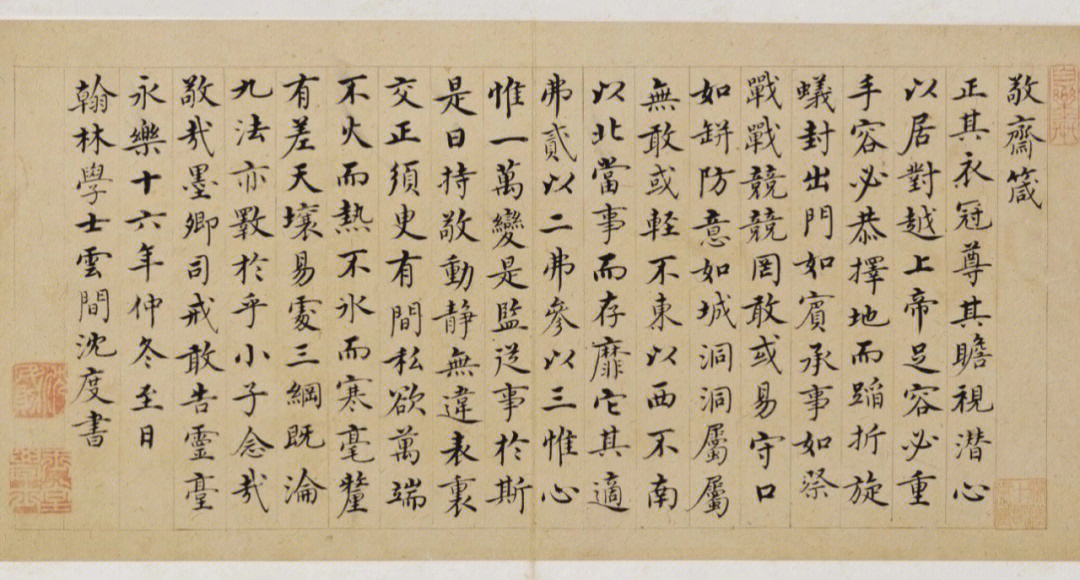 敬齋箴
正其衣冠尊其瞻視潛心
以居對越上帝足容必重
手容必恭擇地而蹈折旋
蟻封出門如賓承事如祭
戰戰兢兢罔敢或易守口
如缾防意如城洞洞屬屬
無敢或軽不東以西不南
以北當事而存靡它其適
弗貳以二弗參以三惟心
惟一萬變是監從事於斯
是曰持敬動靜無違表裏
交正須臾有間私欲萬端
不火而熱不氷而寒毫釐
有差天壤易處三綱既淪
九法亦斁於乎小子念哉
敬哉墨卿司戒敢告靈臺
永樂十六年仲冬至日
翰林學士雲間沈度書